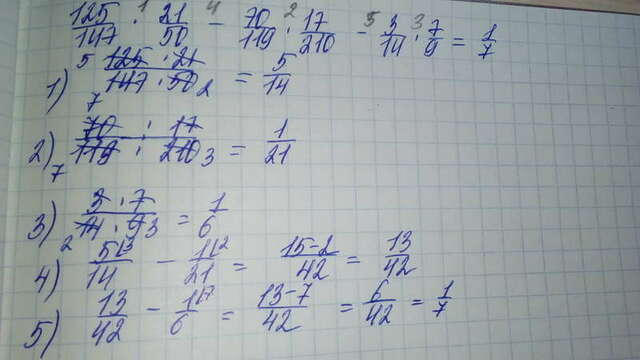 125/147 · 21/50 − 70/119 · 17/210 − 3/14 · 7/9 = 1/7
1) 125 · 21 / 147 · 50 = 5/14
2) 70 · 17 / 119 · 210 = 1/21
3) 3 · 7 / 14 · 9 = 1/6
4) 5/14 − 1/21 = 15−2/42 = 13/42
5) 13/42 − 1/6 = 13−7/42 = 6/42 = 1/7